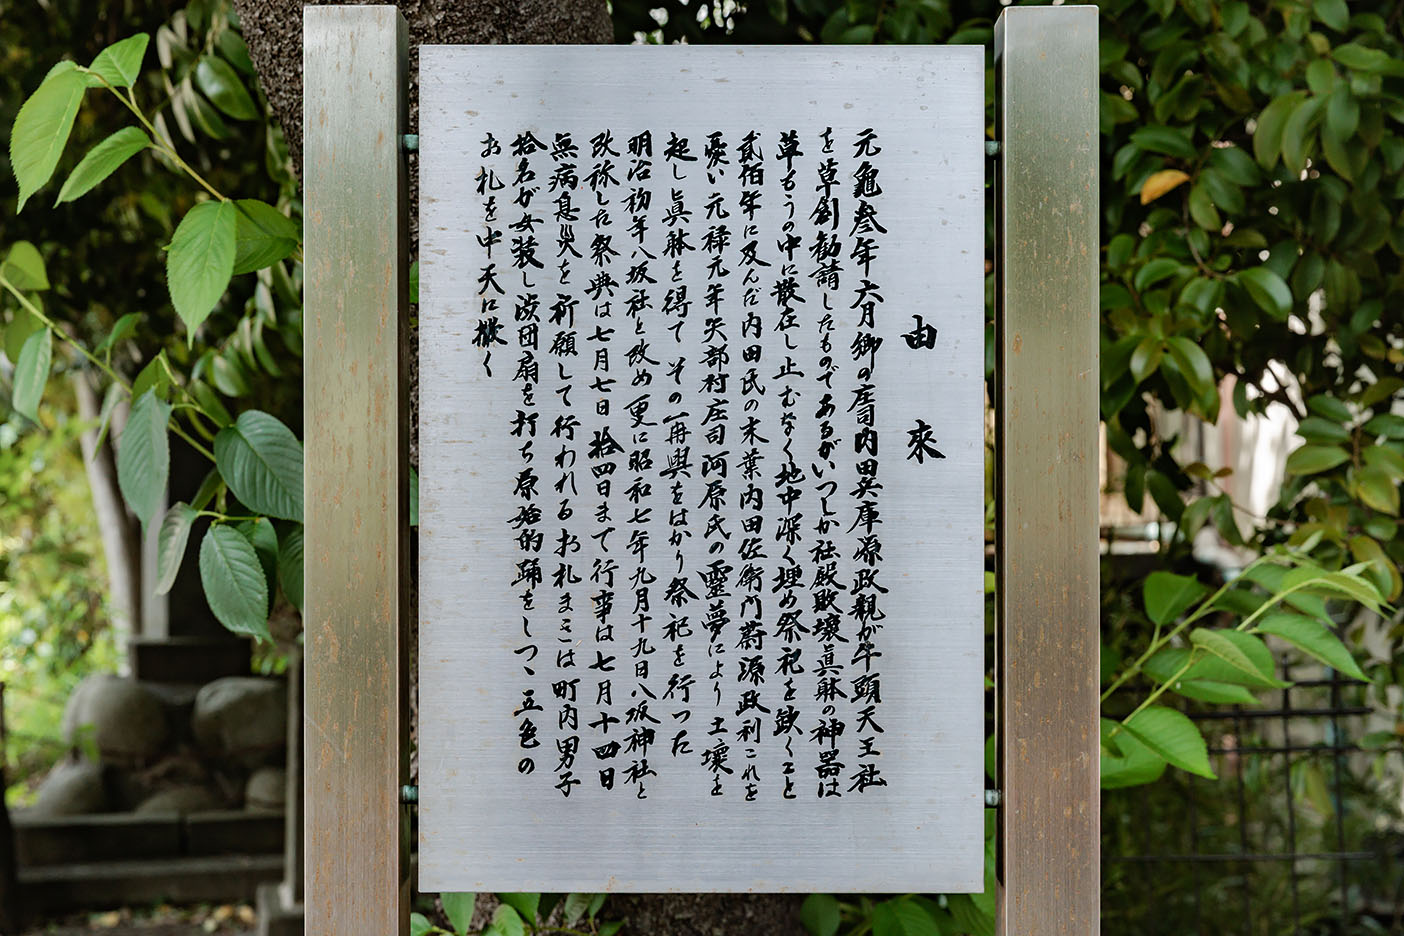 由来
元龜叄年六月郷の庄司内田兵庫源政親が牛頭天王社
を草創勧請したものであるがいつしか社殿敗壊眞躰の神器は
草もうの中に散在し止むなく地中深く埋め祭祀を缺くこと
貳佰年に及んだ内田氏の末葉内田佐衛門蔚源政利これを
憂い元禄元年矢部村庄司河原氏の靈夢により土壌を
起し眞躰を得て その再興をはかり祭祀を行った
明治初年八坂社と改め更に昭和七年九月十九日八坂神社と
改称した祭典は七月七日拾四日まで行事は七月十四日
無病息災を祈願して行われるお札まきは町内男子
拾名が女装し渋団扇を打ち原始的踊をしつゝ五色の
お札を中天に撒く